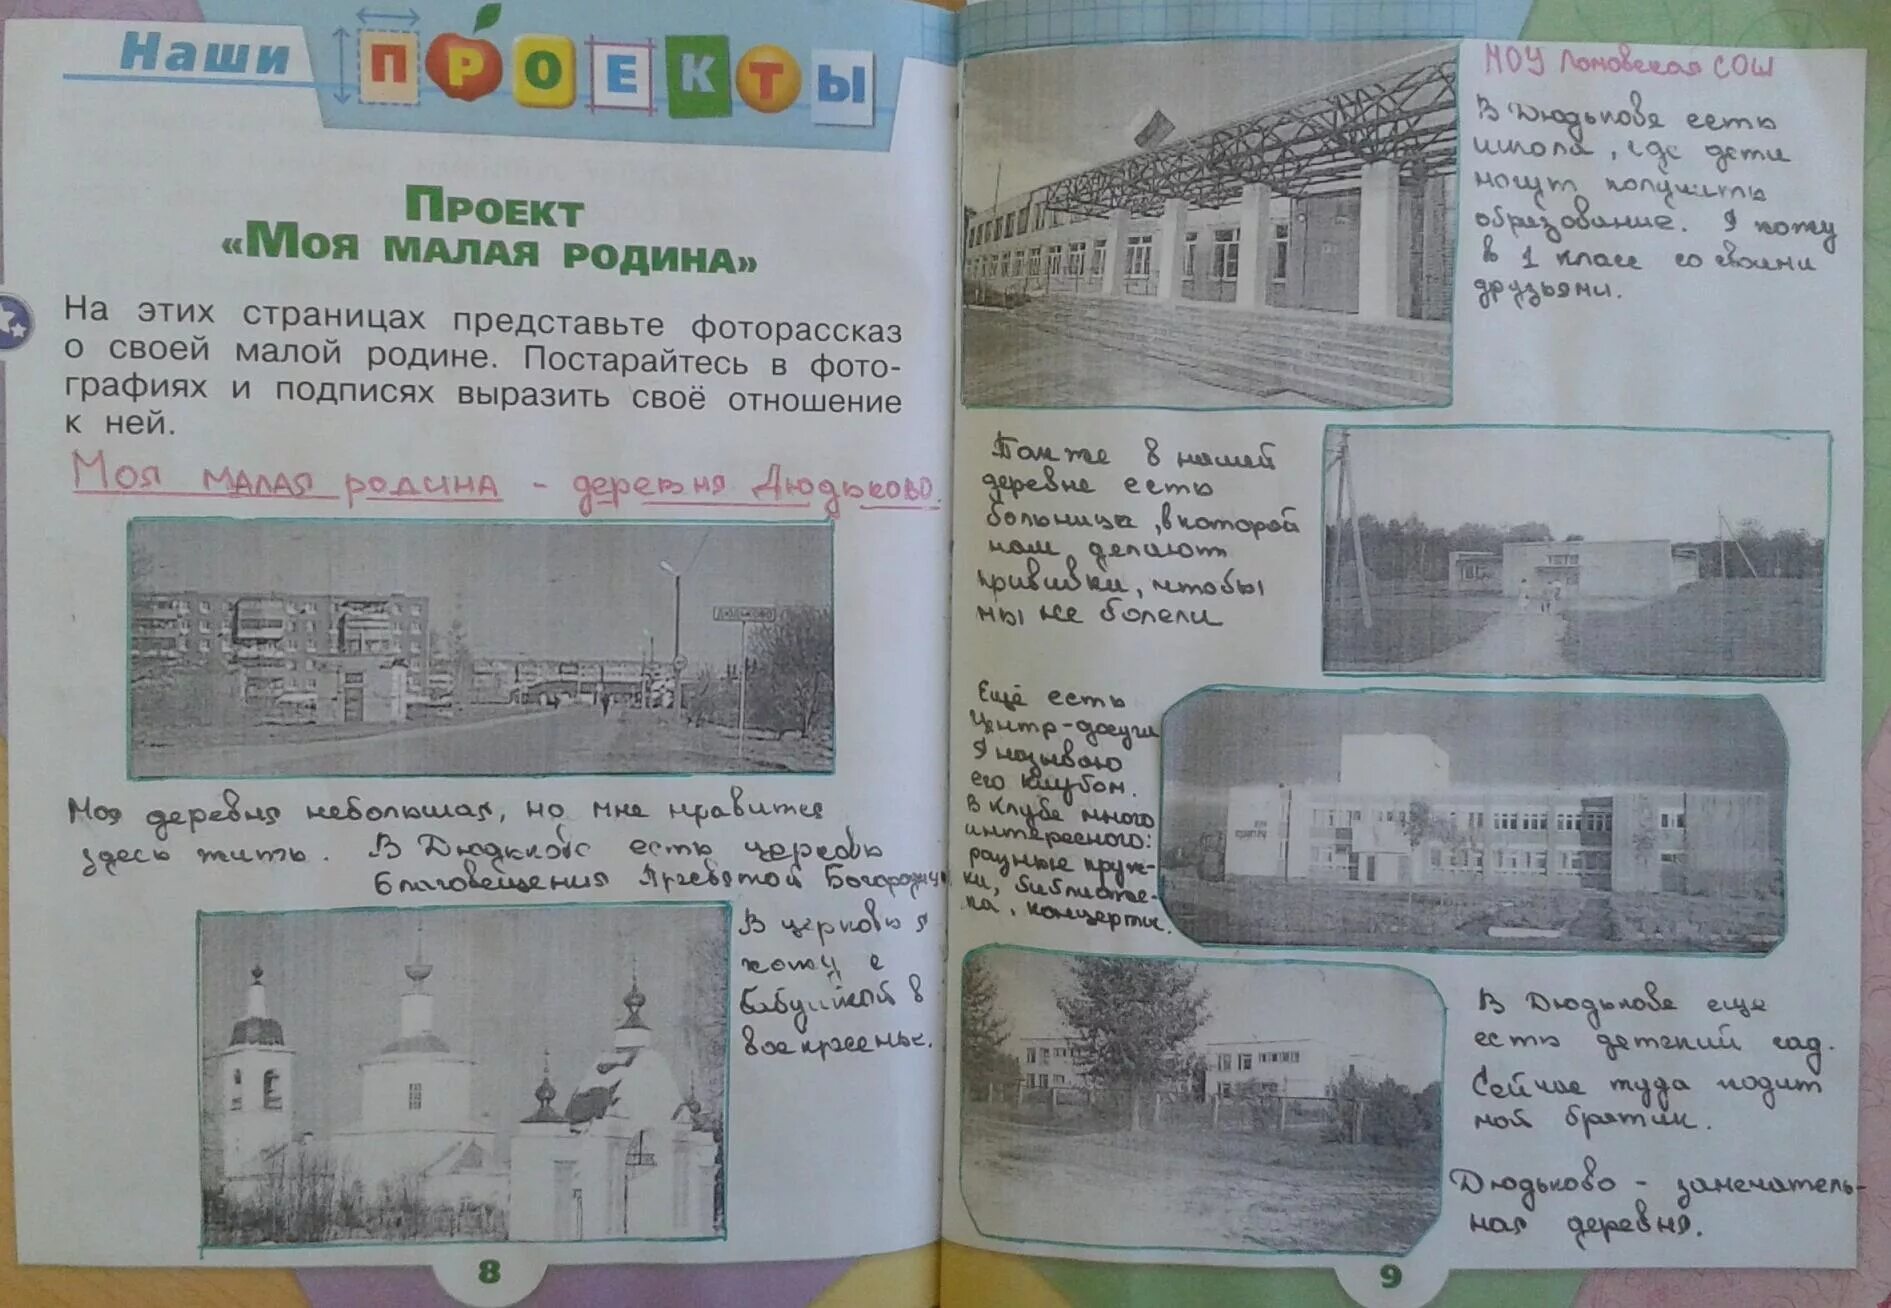 Наши ПРОЕКТЫ
ПРОЕКТ
«МОЯ МАЛАЯ РОДИНА»
На этих страницах представьте фоторассказ
о своей малой родине. Постарайтесь в фото-
графиях и подписях выразить своё отношение
к ней.
Моя малая родина - деревня Дюдьково.
ДЮДЬКОВО
Моя деревня небольшая, но мне нравится
здесь жить. В Дюдькове есть церковь
Благовещения Пресвятой Богородицы
В церковь я
хожу с
бабушкой в
воскресенье.
8
МОУ Ломовская СОШ
В Дюдькове есть
школа, где дети
могут получить
образование. Я хожу
в 1 класс со своими
друзьями.
Также в нашей
деревне есть
больница, в которой
нам делают
прививки, чтобы
мы не болели
Ещё есть
Центр-досуга
Я называю
его клубом.
В клубе много
интересного:
разные круж-
ки, библиоте-
ка, концерты.
В Дюдькове еще
есть детский сад.
Сейчас туда ходит
мой братик.
Дюдьково - замечатель-
ная деревня.
9